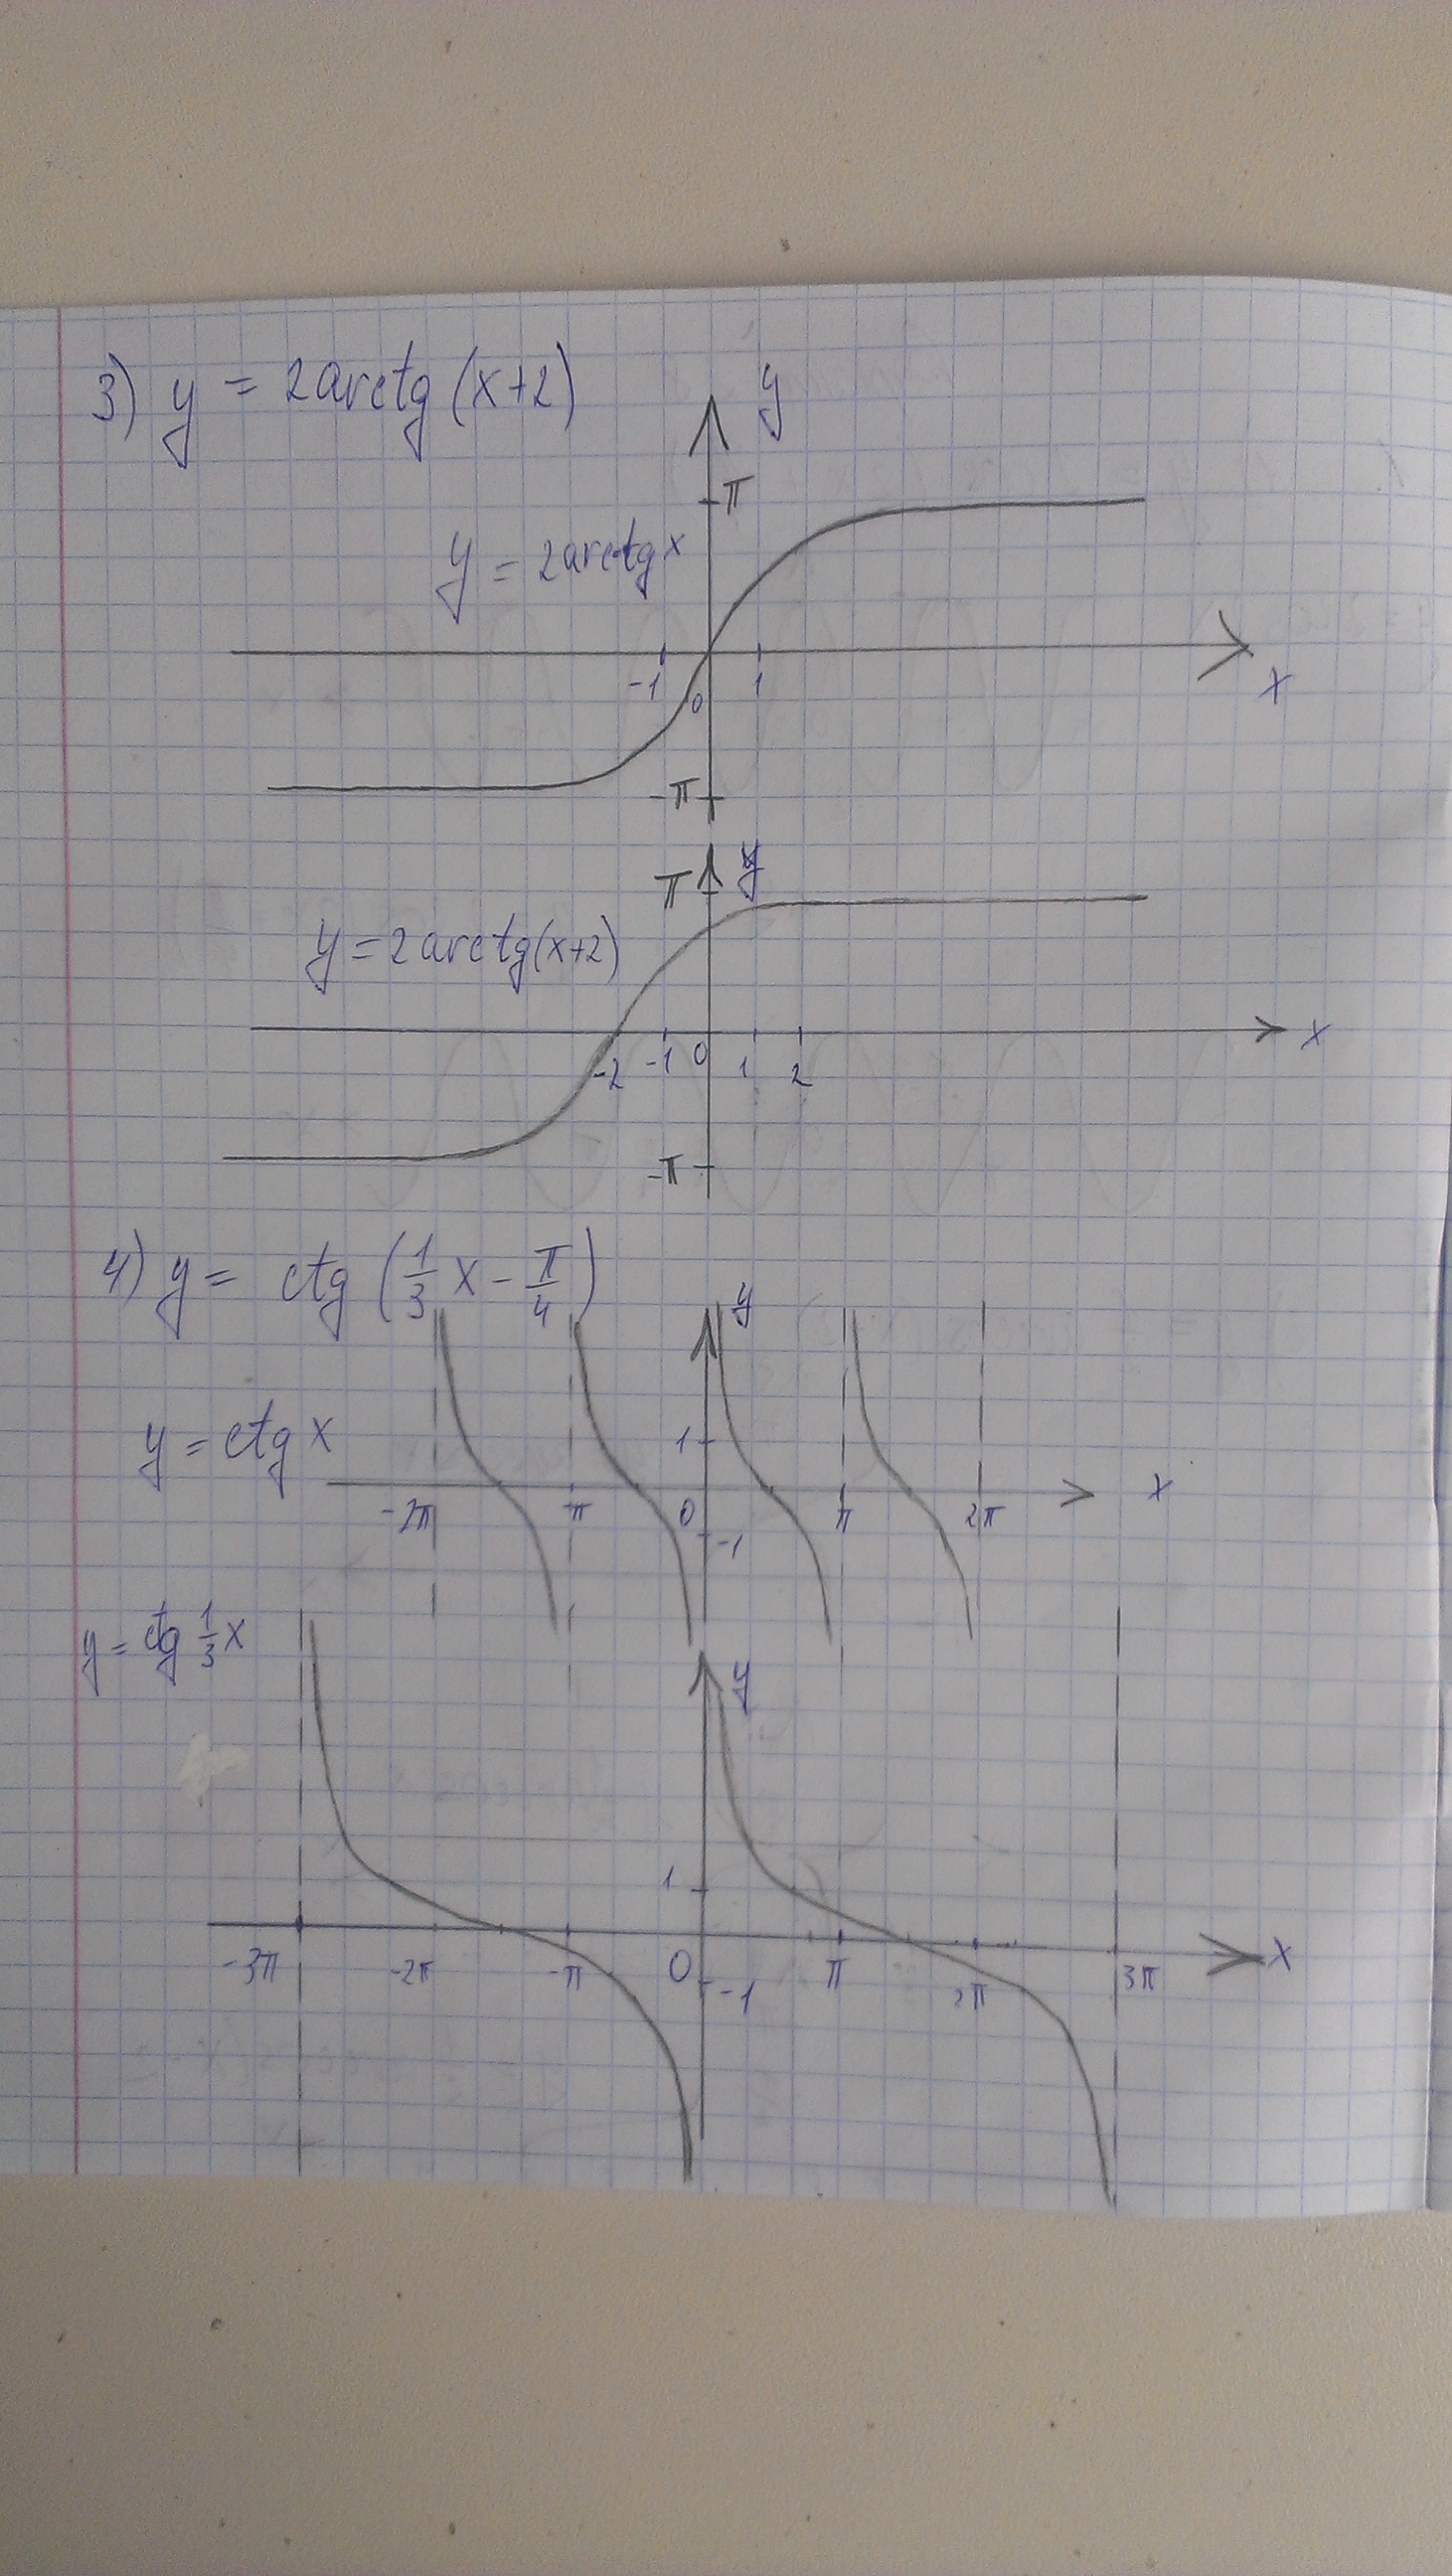 3) y = 2arctg (x+2)
y
π
y = 2arctg x
-1 0 1 x
-π
π y
y = 2arctg(x+2)
-2 -1 0 1 2 x
-π
4) y = ctg (1/3 x - π/4)
y
y = ctg x
1
-2π -π 0 π 2π x
-1
y = ctg 1/3 x
y
1
-3π -2π -π 0 π 2π 3π x
-1